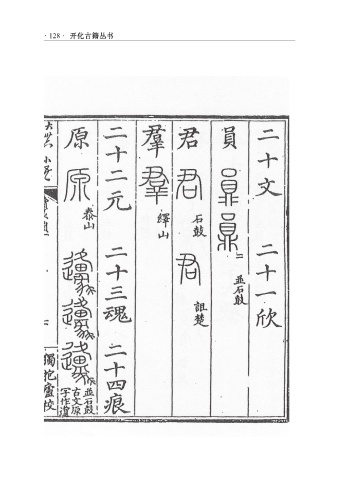 · 128 · 开化古籍丛书
二十文 二十一欣
員 員 員 二 並石鼓
君 君 石鼓 君 詛楚
羣 羣 繹山
二十二元 二十三魂 二十四痕
原 原 泰山 邍 邍 邍 並石鼓 古文原 字作邍
獨抱廬校